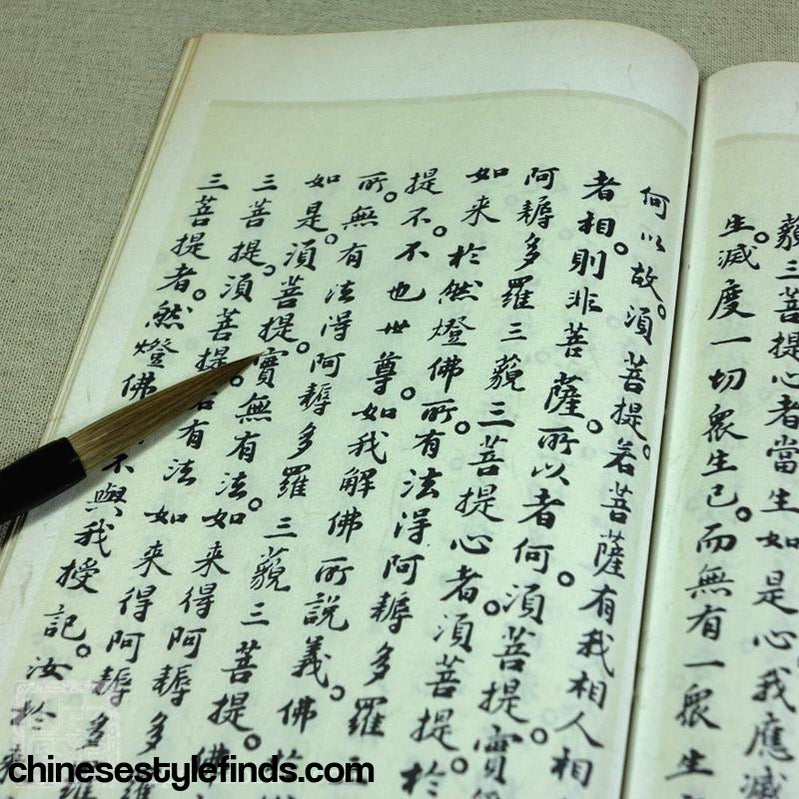 藐三菩提心者當生如是心我應滅
生。滅度一切眾生已。而無有一眾生
何以故。須菩提。若菩薩有我相人相
者相。則非菩薩。所以者何。須菩提。實
阿耨多羅三藐三菩提心者。須菩提。於
如来於然燈佛所。有法得阿耨多羅三
提。不。不也世尊。如我解佛所說義。佛於
所。無有法得阿耨多羅三藐三菩提。佛
如是。須菩提。實無有法。如来得阿耨多
三菩提。須菩提。若有法如来得阿耨多羅
三菩提者。然燈佛不與我授記。汝於来
chinesestylefinds.com